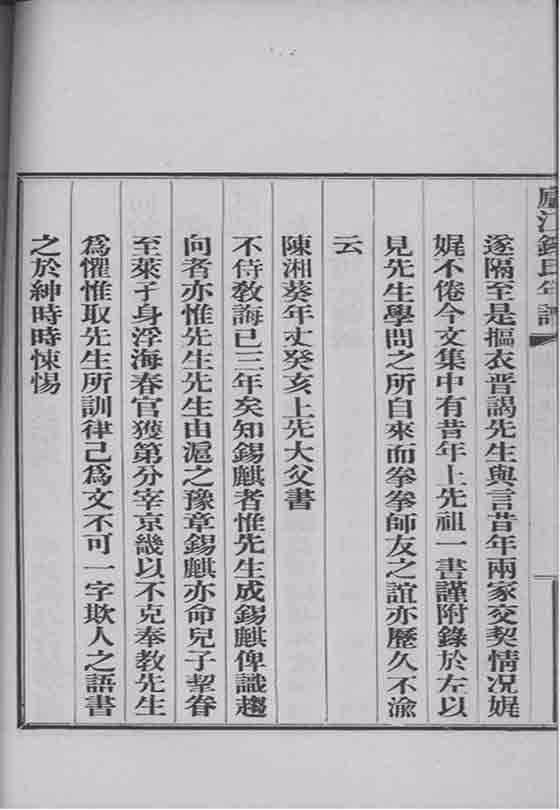 廬江錢氏年譜
遂隔至是摳衣晋謁先生與言昔年兩家交契情况娓
娓不倦今文集中有昔年上先祖一書謹附錄於左以
見先生學問之所自來而拳拳師友之誼亦歷久不渝
云
陳湘葵年丈癸亥上先大父書
不待敎誨已三年矣知錫麒者惟先生成錫麒俾識趨
向者亦惟先生先生由滬之豫章錫麒亦命兒子挈眷
至萊孑身浮海春官獲第分宰京畿以不克奉教先生
爲懼惟取先生所訓律己爲文不可一字欺人之語書
之於紳時時悚惕